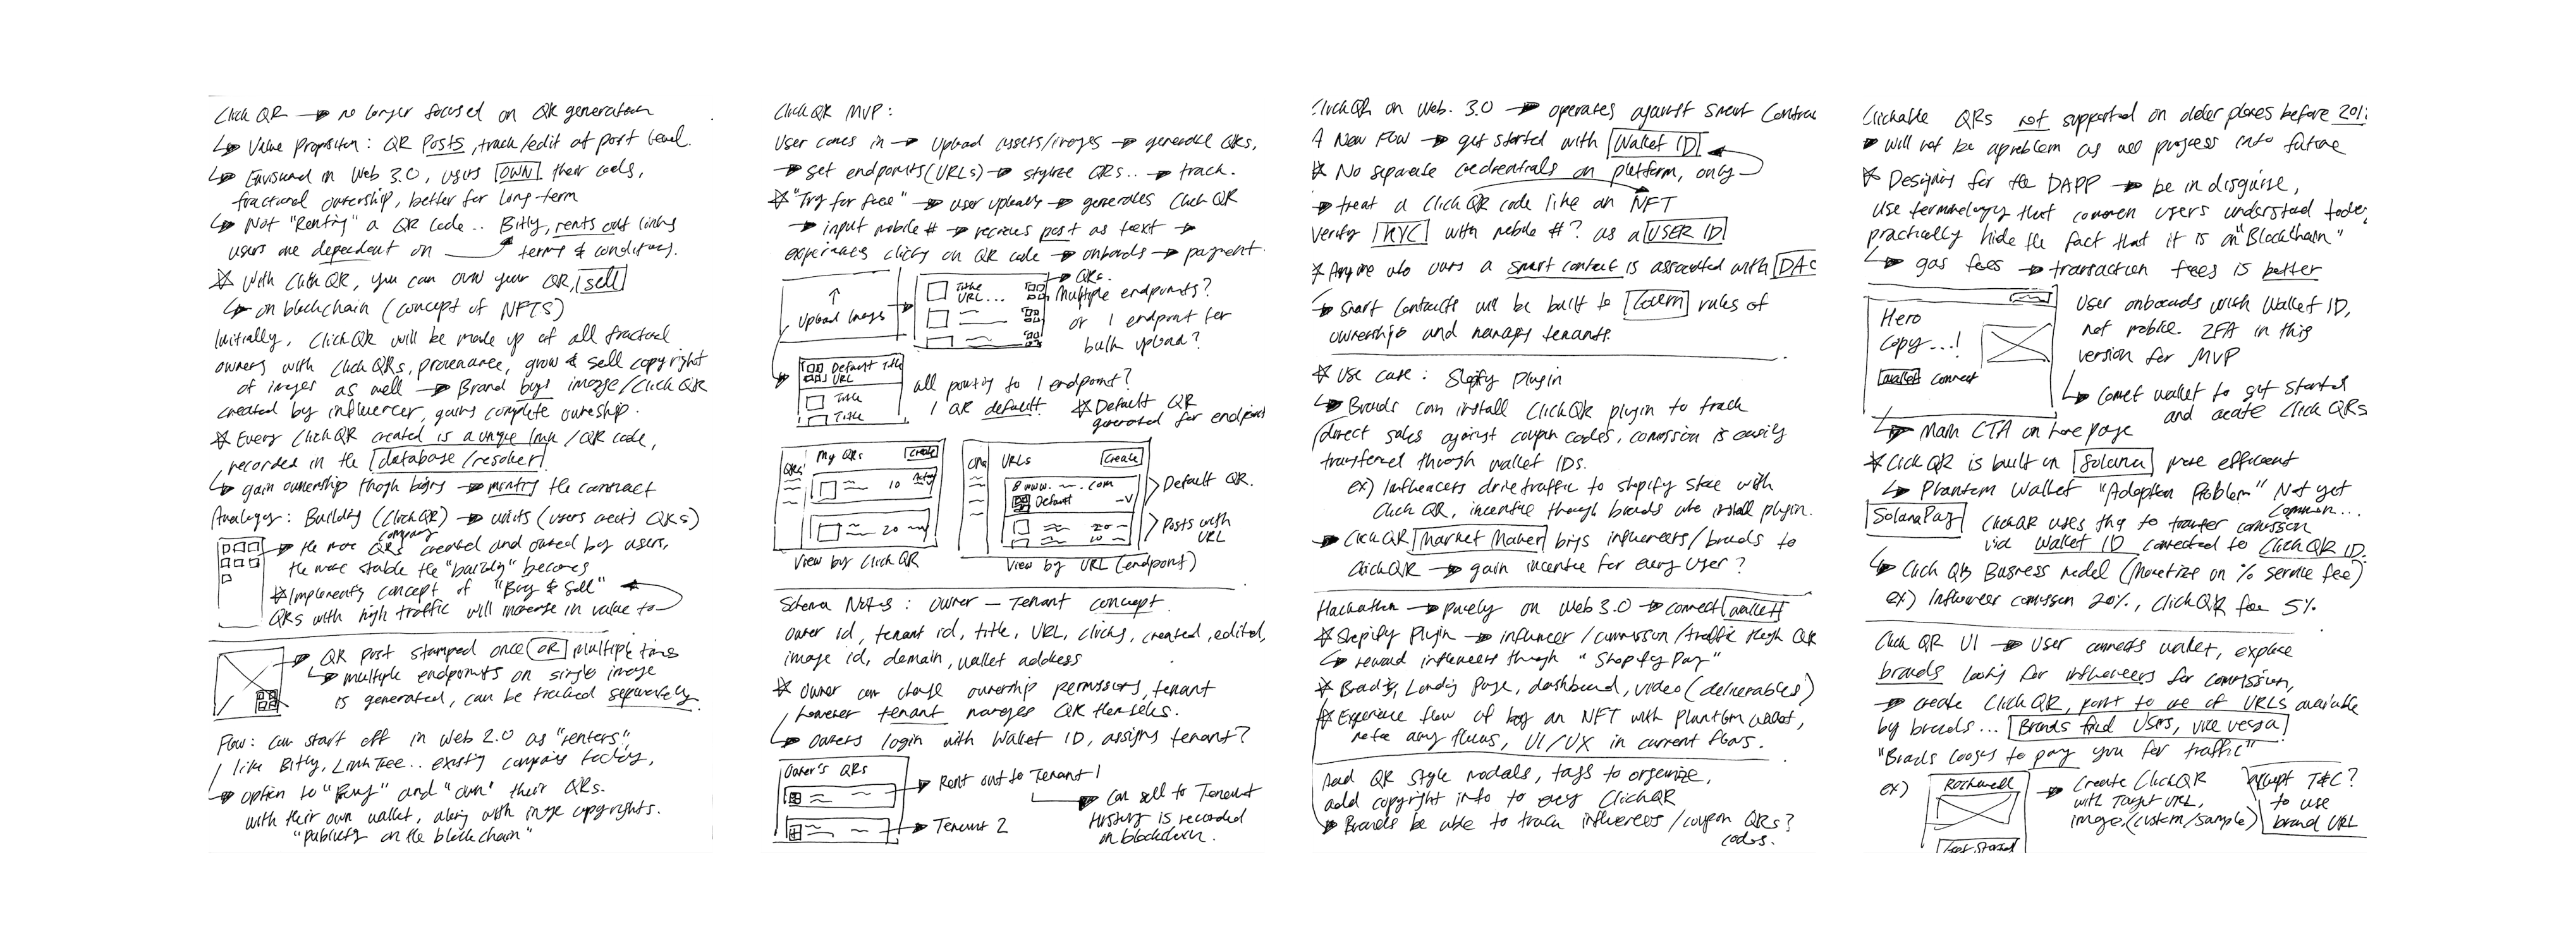 Click QR → no longer focused on QR generation
↳ Value Proposition: QR Posts, track/edit at post level.
↳ Envisioned in Web 3.0, users OWN their codes,
fractional ownership, better for long term
↳ Not "Renting" a QR code.. Bitly, rents out links
users are dependent on terms & conditions.
* With Click QR, you can own your QR, sell
↳ on blockchain (concept of NFTS)
Initially, Click QR will be made up of all fractional
owners with Click QRs, provenance, grow & sell copyright
of images as well → Brand buys image/Click QR
created by influencer, gains complete ownership.
* Every Click QR created is a unique link / QR code,
recorded in the database/resolver
↳ gain ownership though buying → minting the contract
Analogy: Building (Click QR) → units (users create QRs)
company
→ the more QRs created and owned by users,
the more stable the "building" becomes
* Implements concept of "Buy & Sell"
QRs with high traffic will increase in value to
→ QR post stamped once OR multiple times
↳ multiple endpoints on single image
is generated, can be tracked separately
Flow: Can start off in Web 2.0 as "renters"
like Bitly, LinkTree.. existing companies today,
→ option to "Buy" and "own" their QRs.
with their own wallet, along with image copyrights.
"publicity on the blockchain"
Click QR MVP:
User comes in → Upload assets/images → generate QRs,
→ set endpoints (URLs) → stylize QRs.. → track.
* "Try for free" → user uploads → generates Click QR
→ input mobile # → recieves post as text →
experiences clicking on QR code → onboards → payment.
↑
Upload Images
Title
URL...
→ QRs.
Multiple endpoints?
or 1 endpoint for
bulk upload?
Default Title
URL
Title
Title
all pointing to 1 endpoint?
1 QR default. * Default QR
generated for endpoint
QRs
My QRs
Create
10
20
View by Click QR
URLs
Create
www. ~ .com
Default
20
10
Default QR.
Posts with
URL
View by URL (endpoint)
Schema Notes: Owner - Tenant concept
owner id, tenant id, title, URL, clicks, created, edited,
image id, domain, wallet address
* Owner can change ownership permissions, tenant
however tenant manages QR themselves.
↳ Owners login with Wallet ID, assigns tenant?
Owner's QRs
→ Rent out to Tenant 1
→ Can sell to Tenant
History is recorded
on blockchain.
→ Tenant 2
Click QR on Web. 3.0 → operates against Smart Contrac
A New Flow → get started with Wallet ID
* No separate credentials on platform, only
→ treat a Click QR code like an NFT
Verify KYC with mobile #? as a USER ID
* Anyone who owns a smart contract is associated with DAC
→ Smart Contracts will be built to Govern rules of
ownership and manage tenants.
* Use case: Shopify Plugin
↳ Brands can install Click QR plugin to track
direct sales against coupon codes, comission is easily
transferred though wallet IDs.
ex) Influencers drive traffic to shopify store with
Click QR, incentive though brands who install plugin.
→ Click QR Market Maker brings influencers/brands to
Click QR → gain incentive for every user?
Hackathon → purely on Web 3.0 → connect wallet
* Shopify Plugin → influencer/commission/traffic though QR
↳ reward influencers though "Shopify Pay"
* Branding, Landing page, dashboard, video (deliverables)
* Experience flow of buying an NFT with Phantom wallet,
note any flaws, UI/UX in current flows.
Add QR Style modals, tags to organize,
add copyright info to every Click QR
→ Brands be able to track influencers/coupon QRs?
codes.
Clickable QRs not supported on older phones before 201
→ will not be a problem as all progress into future
* Designing for the DAPP → be in disguise,
use terminology that common users understand today,
practically hide the fact that it is on "Blockchain"
↳ gas fees → transaction fees is better
Hero
Copy...!
wallet connect
User onboards with Wallet ID,
not mobile. 2FA in this
version for MVP
↳ Connect wallet to get started
and create Click QRs
↳ Main CTA on home page
* Click QR is built on Solana more efficient
↳ Phantom Wallet "Adoption Problem" Not yet
common...
Solana Pay Click QR uses this to transfer comission
via Wallet ID connected to Click QR ID.
↳ Click QR Business model (Monetize on % service fee)
ex) Influencer comission 20%, Click QR fee 5%
Click QR UI → User connects wallet, explore
brands looking for influencers for comission,
→ create Click QR, point to one of URLs available
by brands... Brands find Users, vice versa
"Brands looking to pay you for traffic"
ex)
Rockwell
Get Started
→ Create Click QR
with Target URL,
image (custom/sample)
Accept T&C?
to use
brand URL